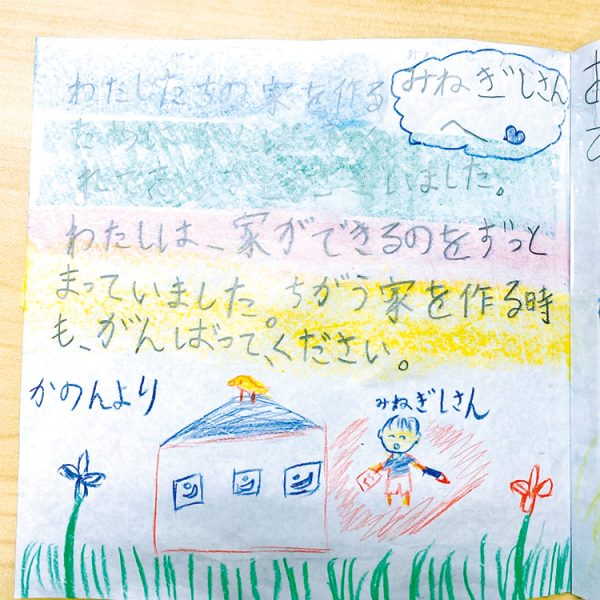 みねぎしさん
へ
わたしたちの家を作る
れてありがとうございました。
わたしは、家ができるのをずっと
まっていました。ちがう家を作る時
も、がんばって、ください。
かのんより
みねぎしさん